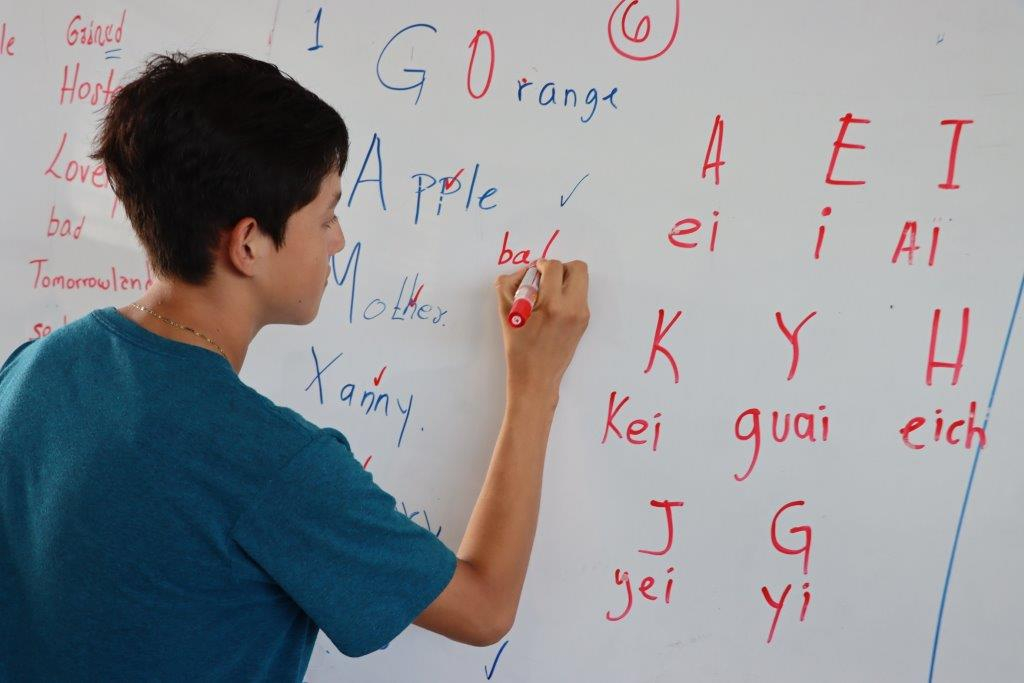 Gained
Love
bad
Tomorrowland
1
G Orange
6
Apple
Mother.
Xanny.
ba
A E I
ei i Aï
K Y H
Kei guai eich
J G
yei yi